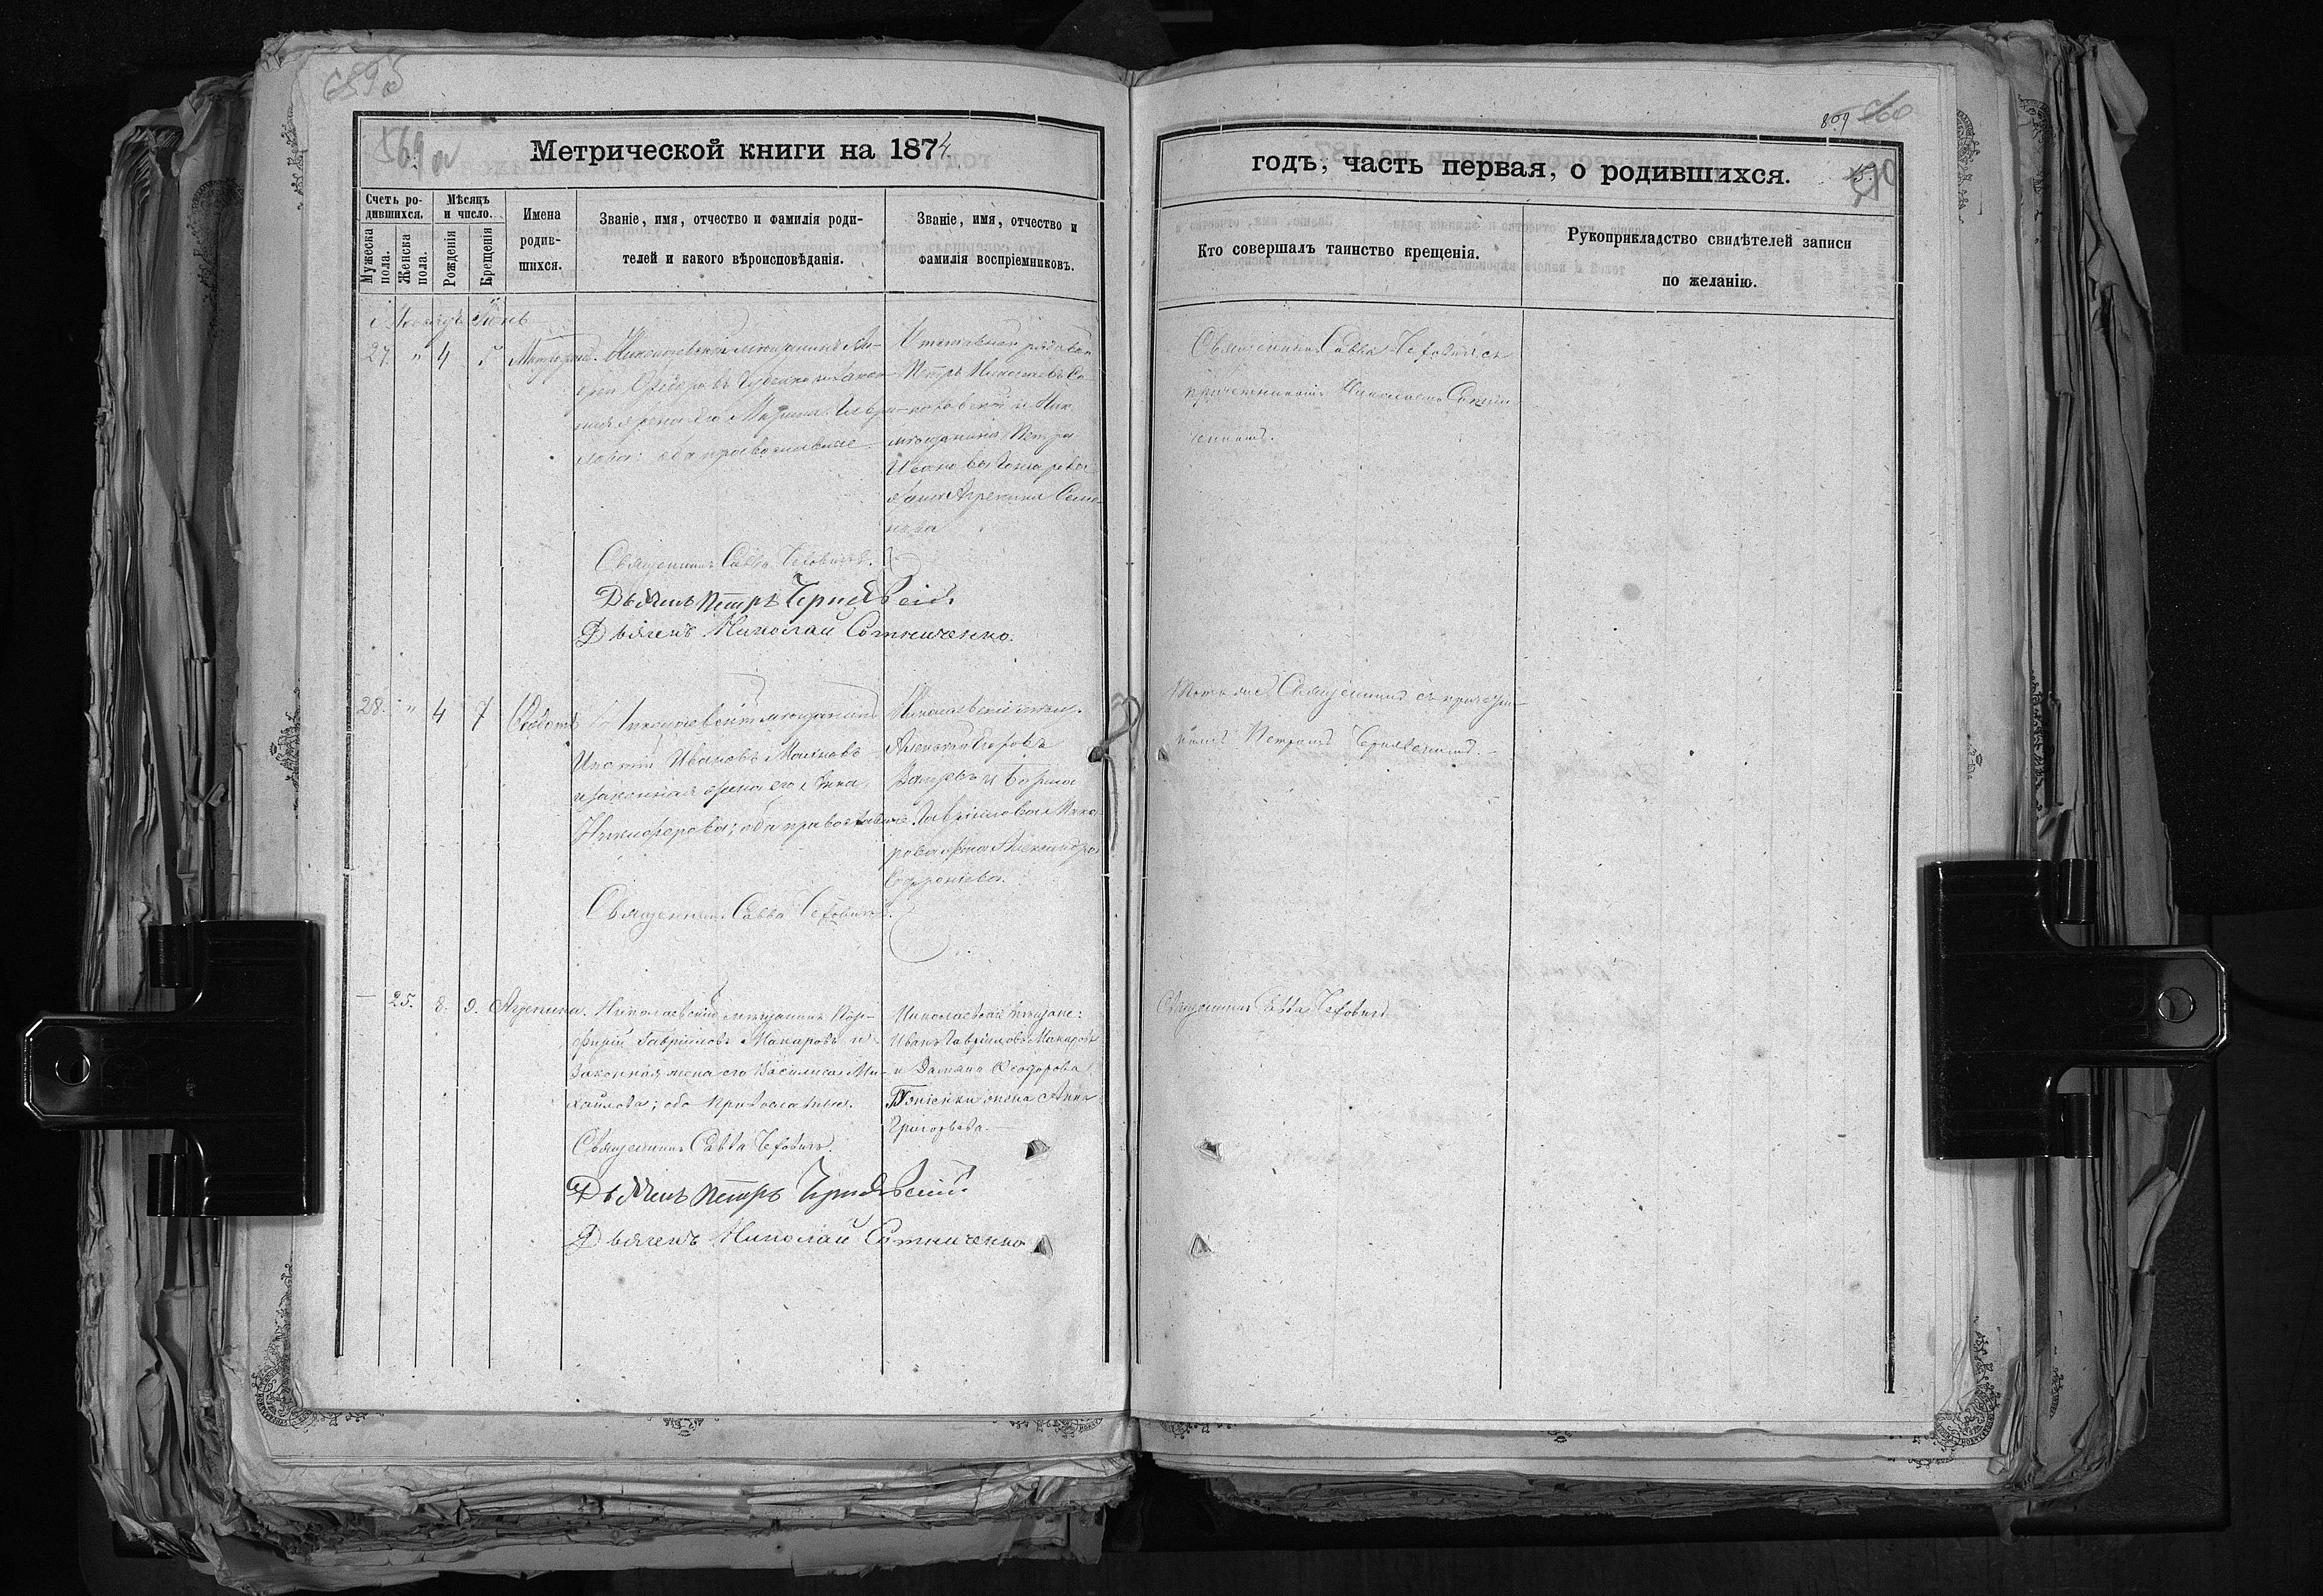 569 об
Метрической книги на 1874
Счетъ ро-
дившихся.
Мѣсяцъ
и число.
Мужеска
пола.
Женска
пола.
Рожденія
Крещенія
Имена
родив-
шихся.
Званіе, имя, отчество и фамилія роди-
телей и какого вѣроисповѣданія.
Званіе, имя, отчество и
фамилія воспріемниковъ.
27. " 4 5
Николаевскій мѣщанинъ
законная
жена его Марина
оба православные
Отставной рядовой
Петръ Николаевъ
и Ник.
мѣщанина Петра
Иванова
жена Агрепина Семе-
нова
Священникъ Савва Чехович.
Дьячекъ Петръ Чернявскій.
Дьячекъ Николай Сотниченко.
28. " 4 7
Николаевскій мѣщанинъ
Ивановъ Маяновъ
и законная жена его Анна
Никифорова; оба православные
Николаевскіе мѣщ.
Алексѣй Егоровъ
и Бориса
Гаврилова Мака-
рова жена Александра
Софроніева.
Священникъ Савва Чехович.
— 25. 8. 9. Агрепина.
Николаевскій мѣщанинъ Пор-
фирій Гавріиловъ Макаровъ и
законная жена его Василиса Ми-
хайлова; оба православные.
Николаевскіе мѣщане:
Иванъ Гавріиловъ Макаровъ
и Даміана Ѳеодорова
жена Анна
Григорьева.
Священникъ Савва Чехович.
Дьячекъ Петръ Чернявскій.
Дьячекъ Николай Сотниченко
809
570
годъ, часть первая, о родившихся.
Кто совершалъ таинство крещенія.
Рукоприкладство свидѣтелей записи
по желанію.
Священникъ Савва Чехович съ
причетникомъ Николаемъ Сотни-
ченкомъ.
Тотъ же Священникъ съ причетни-
комъ Петромъ Чернявскимъ.
Священникъ Савва Чехович